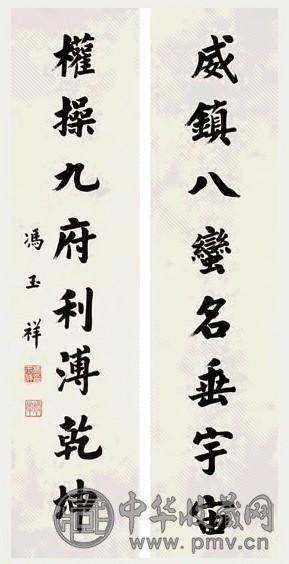 威鎮八蠻名垂宇宙
權操九府利溥乾坤
馮玉祥
中华收藏网
www.pmv.cn